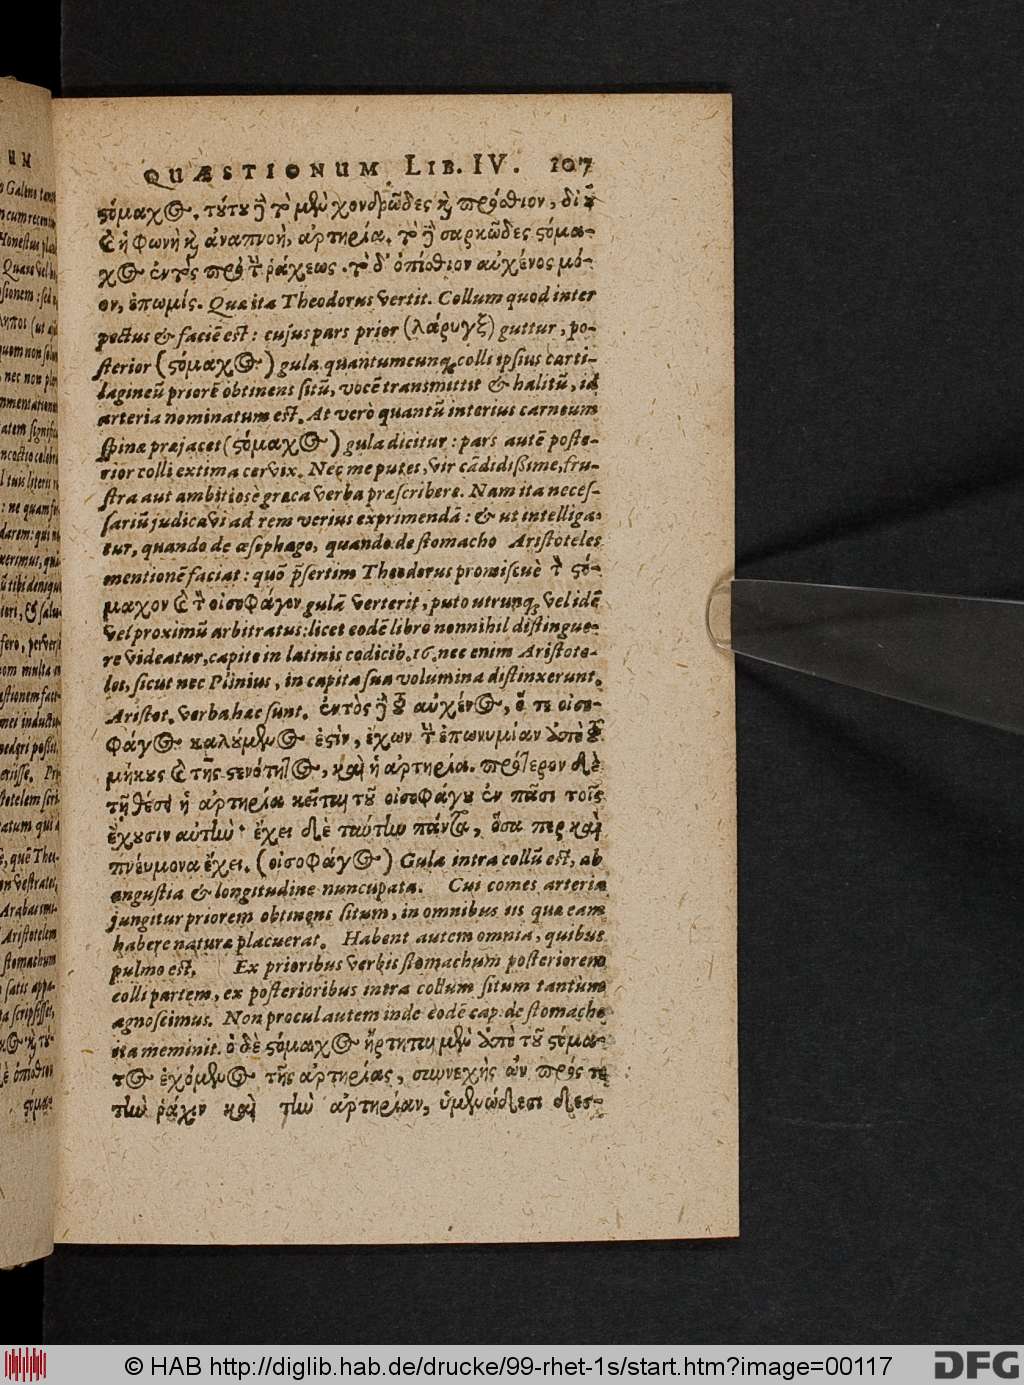 QUÆSTIONUM LIB. IV. 107
ϛόμαχος. τύτυ ἢ τὸ μὲν χονδρῶδες κ̣ πρόθιον, δι ὗ
κ̀ ἡ φωνὴ κ̀ ἀναπνοὴ, ἀρτηρία. τὸ ἢ σαρκῶδες ϛόμα-
χος ἐντὸς πρὸ τ̃ ῥάχεως. τὸ δ' ὀπίσθιον αὐχένος μό-
ον, ἐπωμίς. Quæ ita Theodorus vertit. Collum quod inter
pectus & faciē est: cujus pars prior (λάρυγξ) guttur, po-
sterior (ϛόμαχος) gula quantumcunq; colli ipsius carti-
lagineū priorē obtinens sitū, vocē transmittit & halitū, id
arteria nominatum est. At vero quantū interius carneum
spinæ præjacet (ϛόμαχος) gula dicitur: pars autē poste-
rior colli extima cervix. Nec me putes, vir cādidißime, fru-
stra aut ambitiosè græca verba præscribere. Nam ita neces-
sariū judicavi ad rem verius exprimendā: & ut intelliga-
tur, quando de æsophago, quando de stomacho Aristoteles
mentionē faciat: quō p̄sertim Theodorus promiscuè τ̃ ϛό-
μαχον κ̀ τ̃ οἰσοφάγον gulā verterit, puto utrunq; vel idē
vel proximū arbitratus: licet eodē libro nonnihil distingue-
re videatur, capite in latinis codicib. 16. nec enim Aristote-
les, sicut nec Plinius, in capita sua volumina distinxerunt.
Aristot. verba hæc sunt. ἐντὸς ἢ τ̃ αὐχένος, ὅ τε οἰσο-
φάγος καλύμενος ἐϛὶν, ἔχων τ̃ ἐπωνυμίαν ὑπὸ τ̃
μήκυς κ̀ τῆς ϛενότητος, καὶ ἡ ἀρτηρία. πρότερον δὲ
τῇ θέσει ἡ ἀρτηρία κεῖται τῦ οἰσοφάγυ ἐν πᾶσι τοῖς
ἔχυσιν αὐτὴν· ἔχει δὲ ταύτην πάντα, ὅσα περ καὶ
πνεύμονα ἔχει. (οἰσοφάγος) Gula intra collū est, ab
angustia & longitudine nuncupata. Cui comes arteria
jungitur priorem obtinens situm, in omnibus iis quæ eam
habere natura placuerat. Habent autem omnia, quibus
pulmo est. Ex prioribus verbis stomachum posteriorem
colli partem, ex posterioribus intra collum situm tantùm
agnoscimus. Non procul autem inde eodē cap. de stomacho
ita meminit. ὁ δὲ ϛόμαχος ἤρτηται μὲν ὑπὸ τῦ ϛόμα-
τος ἐχόμενος τῆς ἀρτηρίας, συνεχὴς ὢν πρός τε
τὴν ῥάχιν καὶ τὴν ἀρτηρίαν, ὑμενώδεσι δεσ-
© HAB http://diglib.hab.de/drucke/99-rhet-1s/start.htm?image=00117
DFG